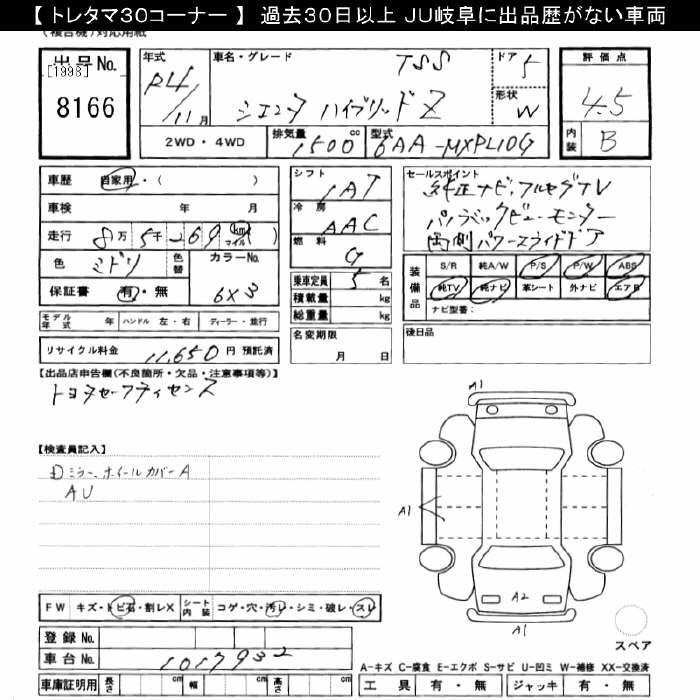 【トレタマ30コーナー】 過去30日以上 JU岐阜に出品歴がない車両
(複合機)対応用紙
出品No. [1998] 8166
年式 R4/11月
車名・グレード TSS シエンタ ハイブリッドZ
ドア 5
形状 W
評価点 4.5
内装 B
2WD・4WD 排気量 1500cc 型式 6AA-MXPL10G
車歴 自家用・( )
車検 年 月
走行 8万5千269 km マイル ( )
色 ミドリ 色替 カラーNo. 6X3
保証書 有・無
モデル年式 年 ハンドル 左・右 ディーラー・並行
リサイクル料金 11,650円 預託済
シフト IAT
冷房 AAC
燃料 G
乗車定員 5名
積載量 kg
総重量 kg
名変期限 月 日
セールスポイント
純正ナビ,フルセグTV
パノラミックビューモニター
両側パワースライドドア
装備品 S/R 純A/W P/S P/W ABS
純TV 純ナビ 革シート 外ナビ エアB
ナビ型番:
後日品
【出品店申告欄(不良箇所・欠品・注意事項等)】
トヨタセーフティセンス
【検査員記入】
Dミラー、ホイールカバーA
AU
A1
A1
A2
A1
スペア
FW キズ・トビ石・割レX シート内装 コゲ・穴・汚レ・シミ・破レ・スレ
登録No.
車台No. 1017932
A-キズ C-腐食 E-エクボ S-サビ U-凹ミ W-補修 XX-交換済
車庫証明用 長さ cm 幅 cm 高さ cm 工具 有・無 ジャッキ 有・無